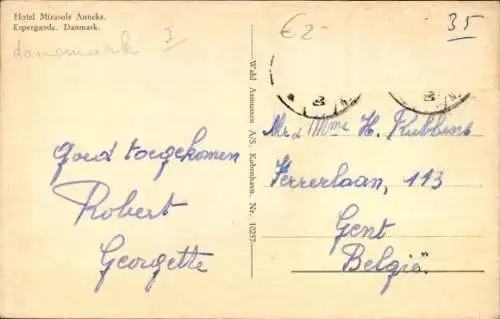 Hotel Mirasols Anneks.
Espergærde. Danmark.
danemark I
€2-
35
Wald Asmussen A/S. København. Nr. 10257
goed toegekomen
Robert
Georgette
Mr & Mme H. Kubbens
Ferrerlaan, 113
Gent
België